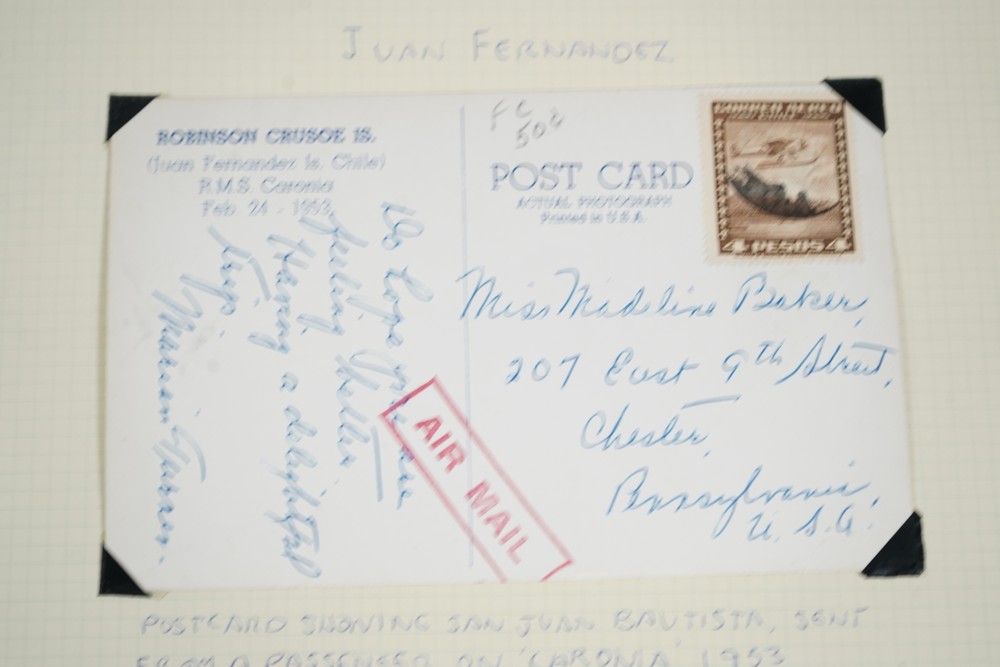 JUAN FERNANDEZ
ROBINSON CRUSOE IS.
(Juan Fernandez Is. Chile)
R.M.S. Caronia
Feb. 24 - 1953
Do hope you are
feeling better
Having a delightful
trip
Marion
FC
50¢
POST CARD
ACTUAL PHOTOGRAPH
Printed in U.S.A.
CORREO AEREO
4 PESOS 4
Miss Madeline Baker,
207 East 9th Street,
Chester,
Pennsylvania,
U.S.A.
AIR MAIL
POSTCARD SHOWING SAN JUAN BAUTISTA, SENT
FROM A PASSENGER ON 'CARONIA' 1953